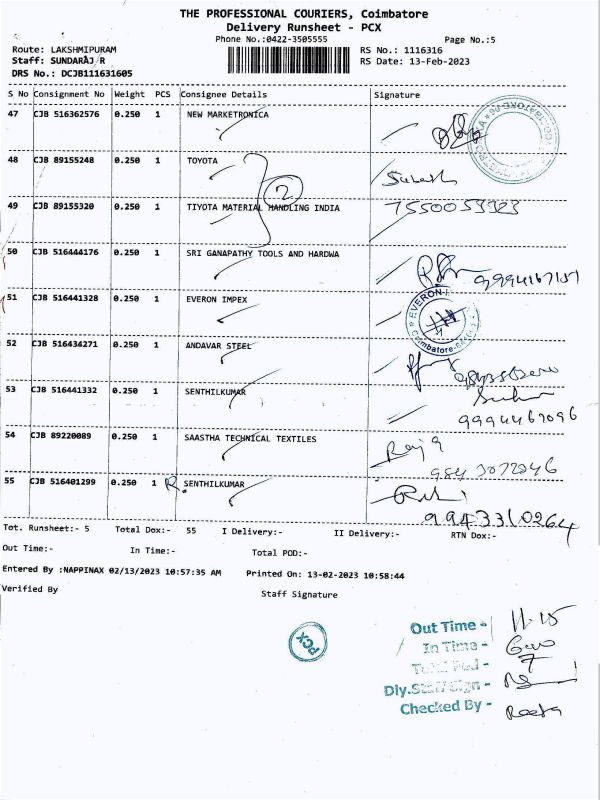 THE PROFESSIONAL COURIERS, Coimbatore
Delivery Runsheet - PCX
Phone No.:0422-3505555
Page No.:5
Route: LAKSHMIPURAM
RS No.: 1116316
Staff: SUNDARAJ R
RS Date: 13-Feb-2023
DRS No.: DCJB111631605
S No Consignment No Weight PCS Consignee Details Signature
47 CJB 516362576 0.250 1 NEW MARKETRONICA
48 CJB 89155248 0.250 1 TOYOTA
Suresh
2
49 CJB 89155320 0.250 1 TIYOTA MATERIAL HANDLING INDIA
50 CJB 516444176 0.250 1 SRI GANAPATHY TOOLS AND HARDWA
51 CJB 516441328 0.250 1 EVERON IMPEX
EVERON
Coimbatore
52 CJB 516434271 0.250 1 ANDAVAR STEEL
53 CJB 516441332 0.250 1 SENTHILKUMAR
9994467096
54 CJB 89220089 0.250 1 SAASTHA TECHNICAL TEXTILES
55 CJB 516401299 0.250 1 R. SENTHILKUMAR
9943310264
Tot. Runsheet:- 5 Total Dox:- 55 I Delivery:- II Delivery:- RTN Dox:-
Out Time:- In Time:- Total POD:-
Entered By :NAPPINAX 02/13/2023 10:57:35 AM Printed On: 13-02-2023 10:58:44
Verified By Staff Signature
PCX
Out Time - 11.15
In Time -
Total Pod - 7
Dly.Staff Sign -
Checked By - Reeta